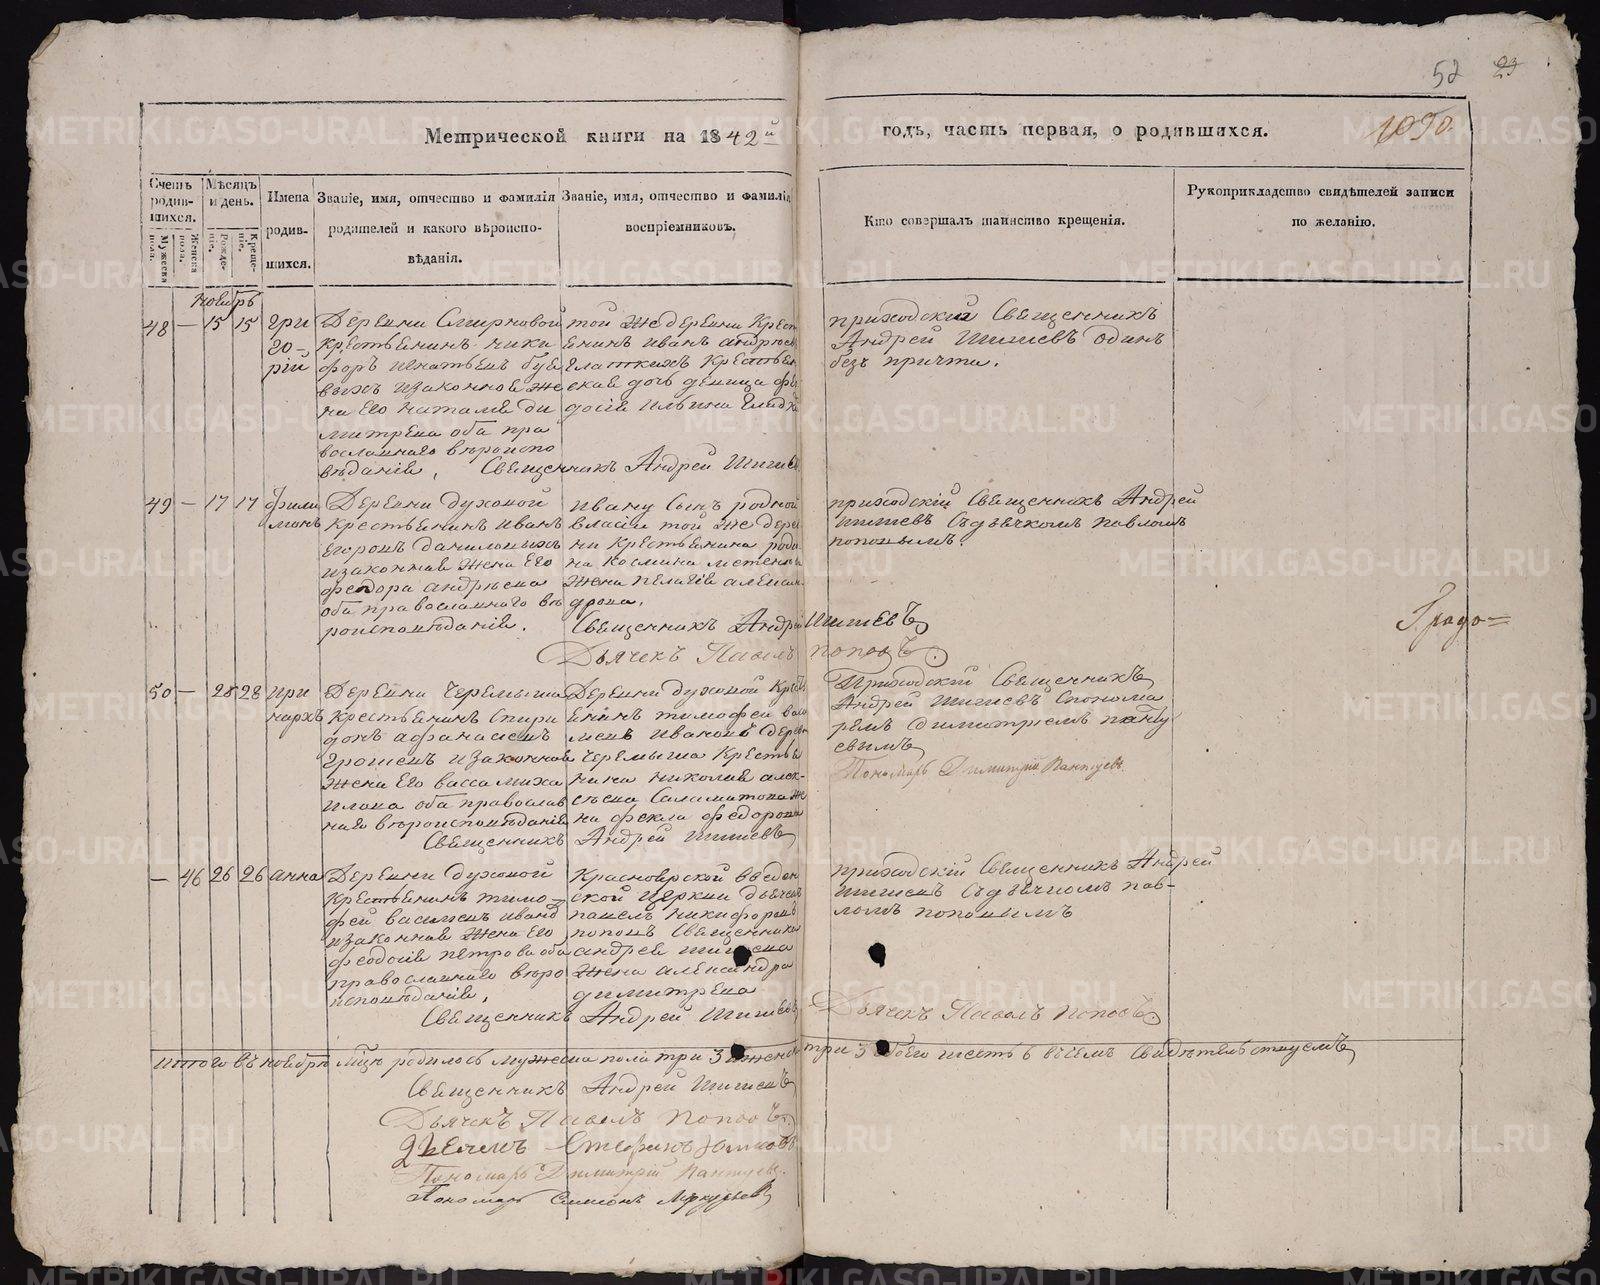 52 23
Метрической книги на 1842й годъ, часть первая, о родившихся.
1090.
Счетъ родившихся.
Мужеска пола.
Женска пола.
Мѣсяцъ и день.
Рожденіе.
Крещеніе.
Имена родившихся.
Званіе, имя, отчество и фамилія родителей и какого вѣроисповѣданія.
Званіе, имя, отчество и фамилія воспріемниковъ.
Кто совершалъ таинство крещенія.
Рукоприкладство свидѣтелей записи по желанію.
Ноябрь
48 — 15 15
Гри
го-
рій
Деревни Смирновой
крестьянинъ Ники
форъ Игнатьевъ
выхъ изаконная же
на его Наталья Ди
митрева оба пра
вославнаго вѣроиспо
вѣданія.
той же деревни крест
янинъ Иванъ
Гладкихъ крестьян
ская дочь девица
досія Ильина
Священникъ Андрей Шишевъ
приходскій Священникъ
Андрей Шишевъ одинъ
безъ причта.
49 — 17 17
Фили
монъ
Деревни Духовой
крестьянинъ Иванъ
Егоровъ Даниловыхъ
изаконная жена его
Федора Андрѣева
оба православнаго вѣ
роисповѣданія.
Ивану сынъ родной
Власій той же дерев
ни крестьянина
на Космина
жена Пелагія Алексан
дрова.
Священникъ Андрей Шишевъ
Дьячекъ Павелъ Поповъ.
приходскій Священникъ Андрей
Шишевъ съ дьячкомъ Павломъ
Поповымъ.
Градо=
50 — 28 28
Ири
нархъ
Деревни Черемыша
крестьянинъ Спири
донъ Афанасьевъ
изаконная
жена его Васса Миха
илова оба православ
наго вѣроисповѣданія
Деревни Духовой крест
янинъ Тимофей Васи
льевъ Ивановъ дерев
Черемыша крестья
нина Николая Алек
сѣева Саламатова же
на Фекла Федорова
Священникъ Андрей Шишевъ
Приходскій Священникъ
Андрей Шишевъ с понома
ремъ Димитріемъ Панту
евымъ
Пономарь Димитрій Пантуевъ.
— 46 26 26
Анна
Деревни Духовой
крестьянинъ Тимо-
фей Васильевъ Иванов
изаконная жена его
Феодосія Петрова оба
православнаго вѣро
исповѣданія.
Красноярской Введен
ской церкви дьячекъ
Павелъ Никифоровъ
Поповъ Священника
Андрея Шишева
жена Александра
Димитрева
Священникъ Андрей Шишевъ
приходскій Священникъ Андрей
Шишевъ съ дьячкомъ Пав-
ломъ Поповымъ
Дьячекъ Павелъ Поповъ
Итого въ ноябрѣ мцѣ родилось мужеска пола три 3 женска три 3 обоего шесть 6 въ чемъ свидѣтельствуемъ
Священникъ Андрей Шишевъ
Дьячекъ Павелъ Поповъ.
Стефанъ
Пономарь Димитрій Пантуевъ.
Пономарь Симеонъ
METRIKI.GASO-URAL.RU